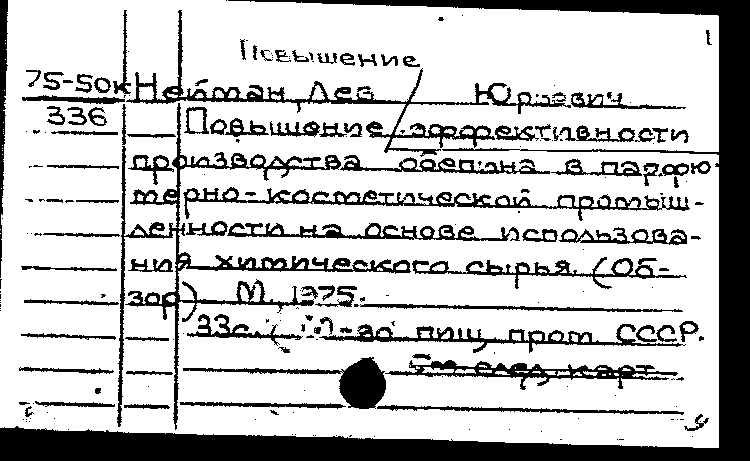 Повышение
1
75-50к Нейман, Лев Юрьевич
336 Повышение эффективности
производства обепина в парфю-
мерно-косметической промыш-
ленности на основе использова-
ния химического сырья. (Об-
зор). М., 1975.
33с. (М-во пищ. пром. СССР.
См след. карт